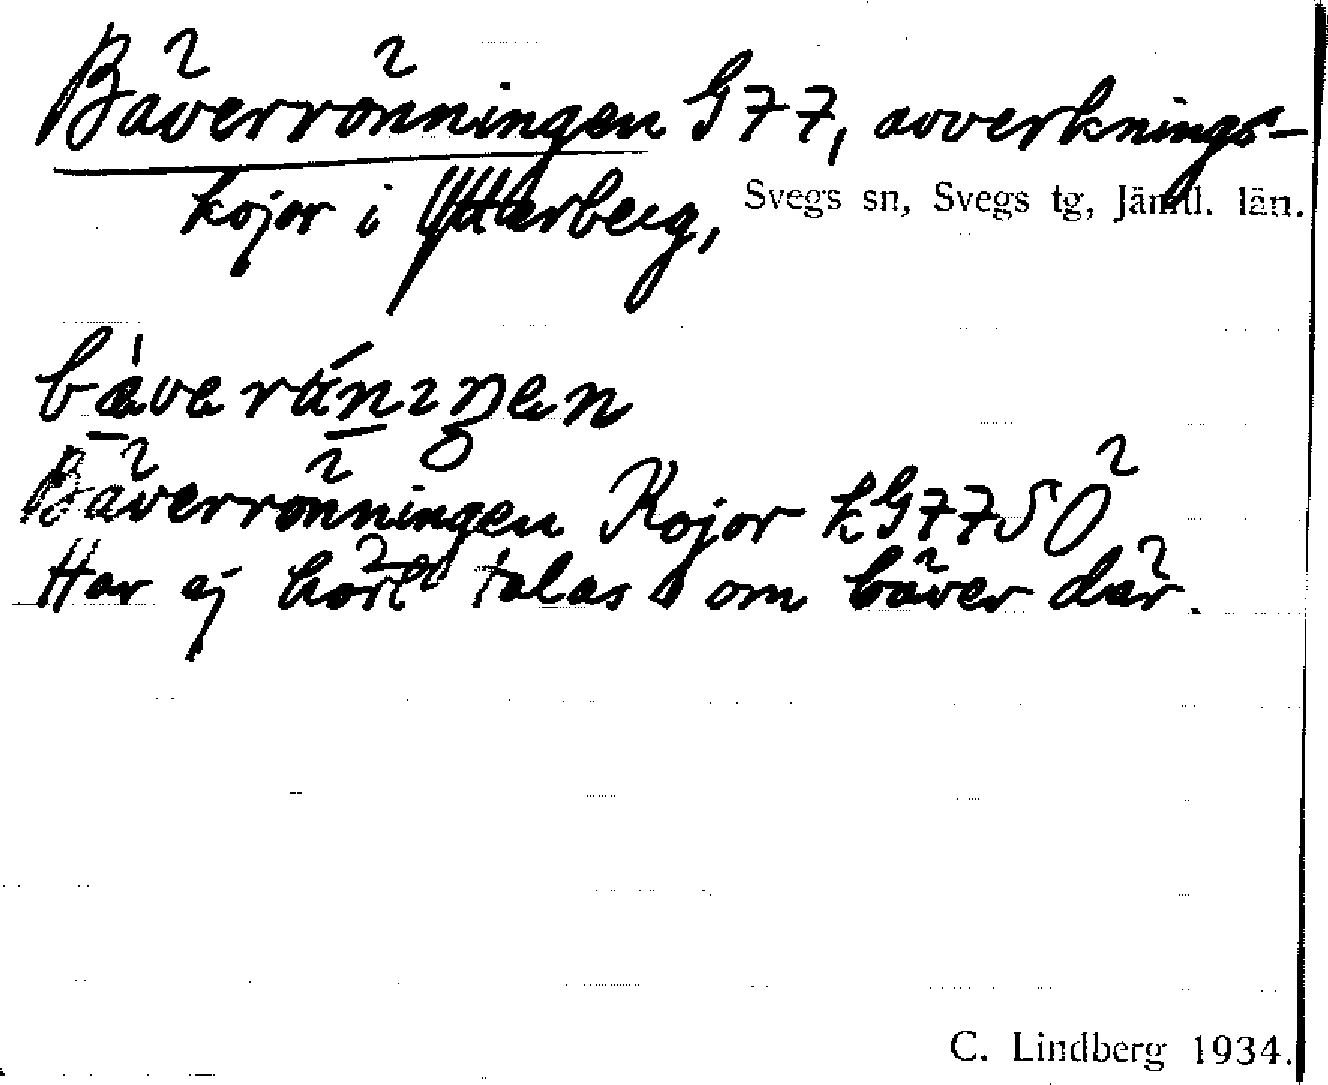 Bäverrönningen G77, avverknings-
kojor i Ytterberg, Svegs sn, Svegs tg, Jämtl. län.
bæverǘnıŋen
Bäverrönningen Kojor kG77SÖ
Har ej hört talas om bäver där.
C. Lindberg 1934.